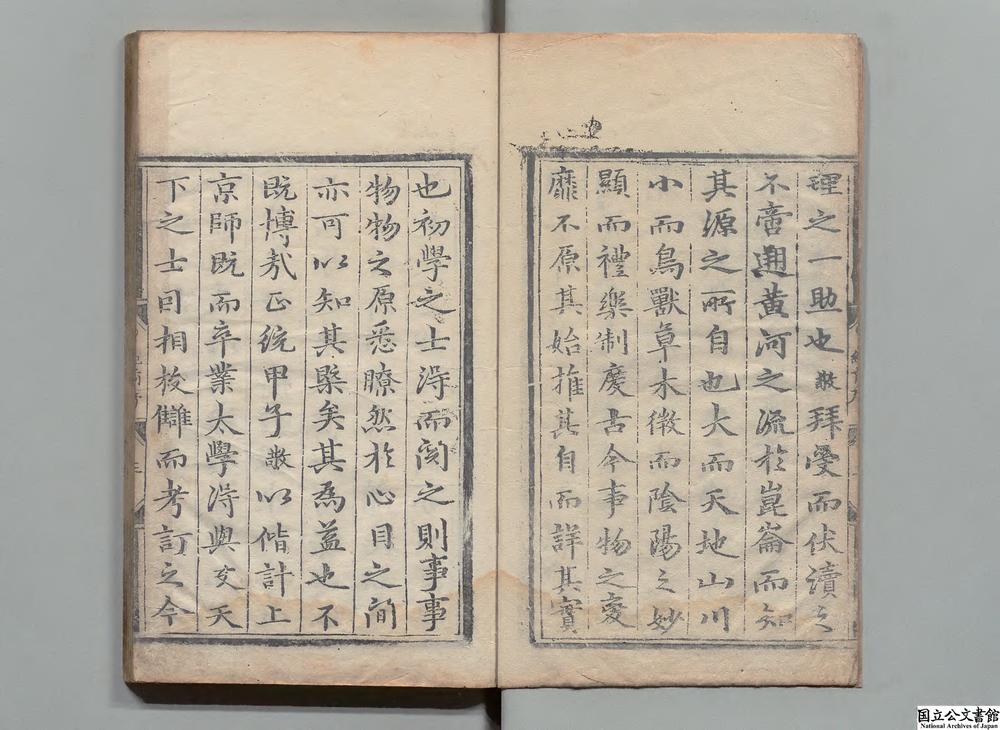 理之一助也敬拜受而伏讀之
不啻遡黃河之流於崑崙而知
其源之所自也大而天地山川
小而鳥獸草木微而陰陽之妙
顯而禮樂制度古今事物之變
靡不原其始推其自而詳其實
也初學之士得而閱之則事事
物物之原悉瞭然於心目之間
亦可以知其槩矣其為益也不
既博哉正統甲子敬以偕計上
京師既而卒業太學得與友天
下之士日相校讎而考訂之今
国立公文書館
National Archives of Japan